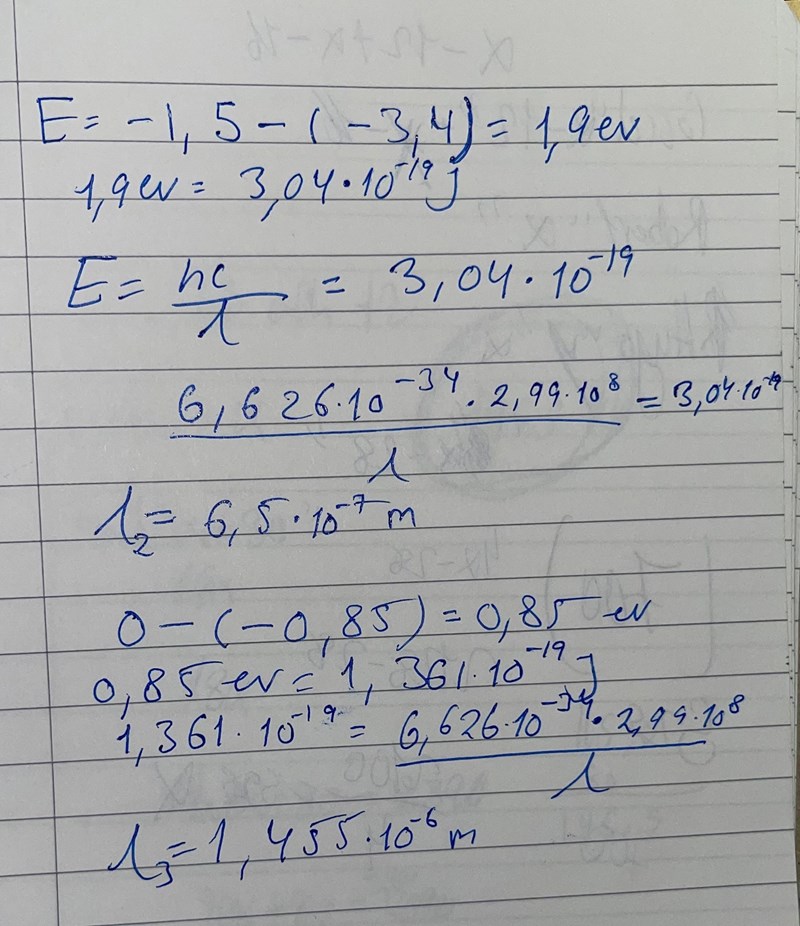 E = -1,5 - (-3,4) = 1,9 ev
1,9 ev = 3,04 · 10^-19 J
E = hc/λ = 3,04 · 10^-19
6,626·10^-34 · 2,99·10^8 / λ = 3,04·10^-19
λ₂ = 6,5 · 10^-7 m
0 - (-0,85) = 0,85 ev
0,85 ev = 1,361·10^-19 J
1,361·10^-19 = 6,626·10^-34 · 2,99·10^8 / λ
λ₃ = 1,455·10^-6 m